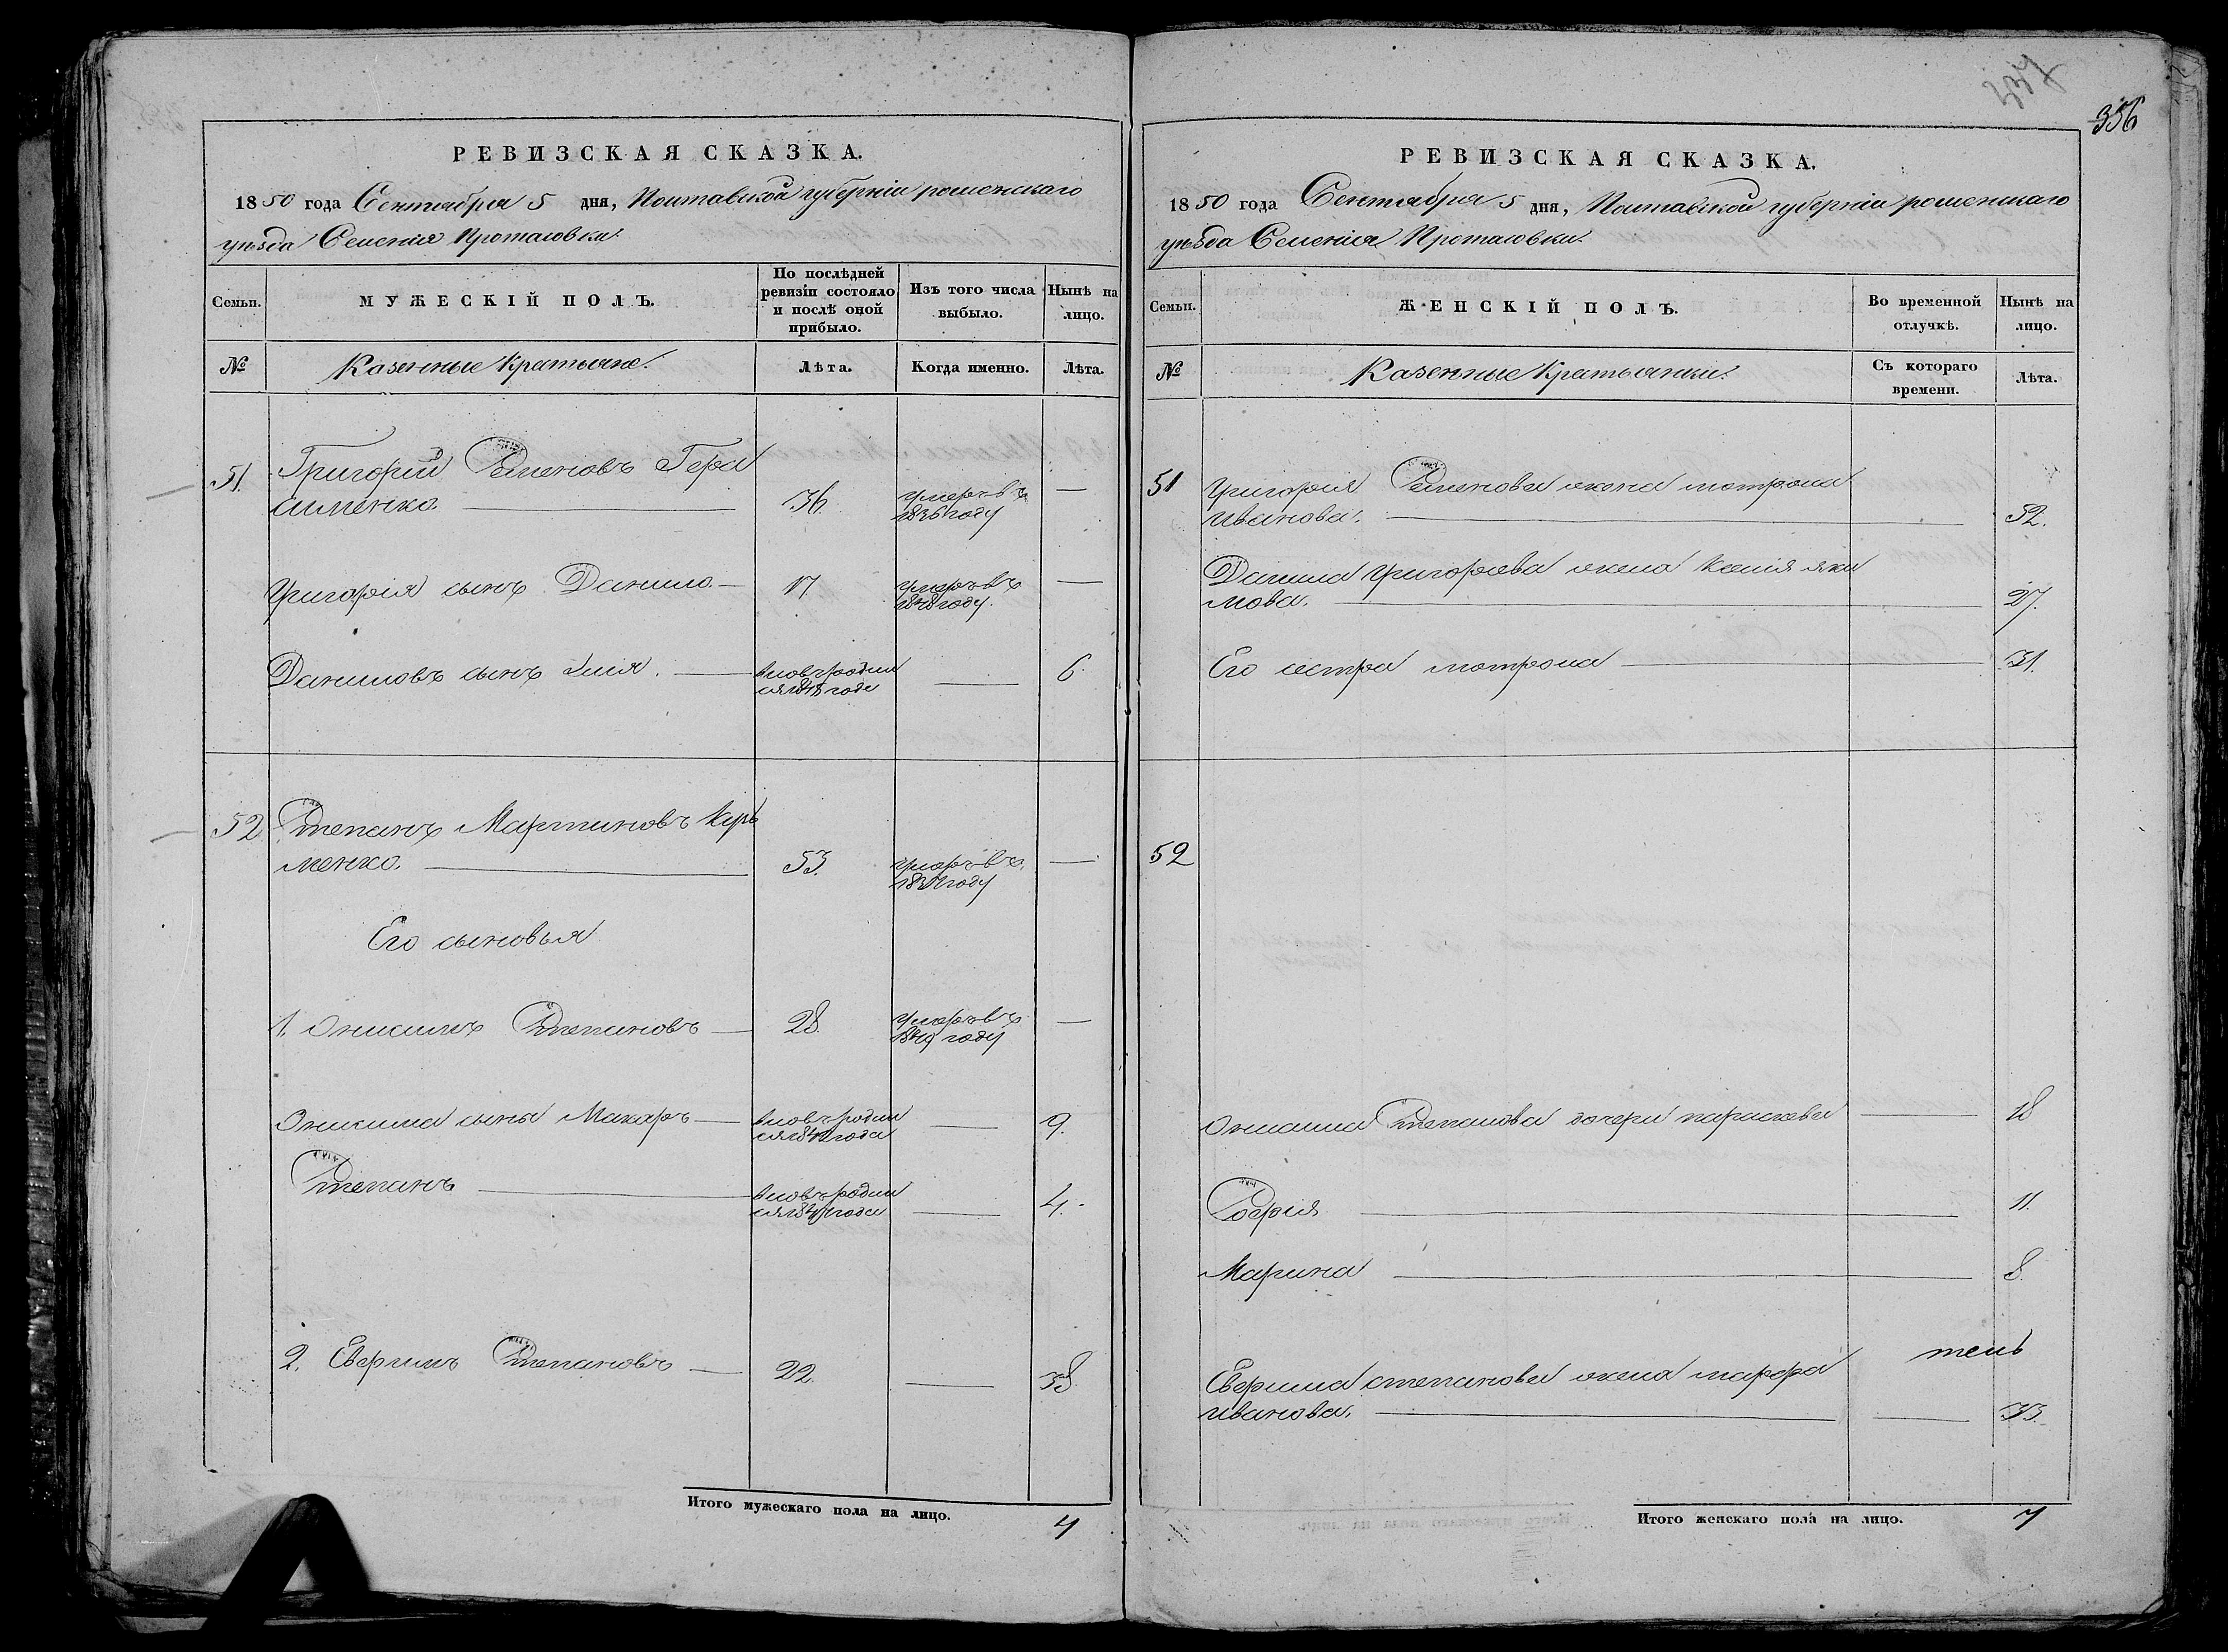 РЕВИЗСКАЯ СКАЗКА.
1850 года Сентября 5 дня, Полтавской губерніи роменскаго
уѣзда Селенія Протасовки.
Семьи.
МУЖЕСКІЙ ПОЛЪ.
По послѣдней
ревизіи состояло
и послѣ оной
прибыло.
Изъ того числа
выбыло.
Нынѣ на
лицо.
№
Казенные Кратьяне.
Лѣта.
Когда именно.
Лѣта.
51. Григорій Семеновъ Гера
сименко. 36. умеръ въ 1836 году —
Григорія сынъ Данило — 17 умеръ въ 1848 году. —
Даниловъ сынъ Илія. — вновь родил
ся года — 6
52 Степанъ Мартиновъ Кирь
менко. 53. умеръ въ году —
Его сыновья
1. Онисимъ Степановъ — 28. умеръ въ году —
Онисима сыны Макаръ — вновь родил
ся года — 9.
Степанъ — вновь родил
ся года — 4.
2. Евфимъ Степановъ — 22. — 38
Итого мужескаго пола на лицо. 4
337
356
РЕВИЗСКАЯ СКАЗКА.
1850 года Сентября 5 дня, Полтавской губерніи роменскаго
уѣзда Селенія Протасовки.
Семьи.
ЖЕНСКІЙ ПОЛЪ.
Во временной
отлучкѣ.
Нынѣ на
лицо.
№
Казенные Кратьянки.
Съ котораго
времени.
Лѣта.
51 Григорія Семенова жена мотрона
Иванова. 52.
Данила Григорьева жена Ксенія яки
мова. 27.
Его сестра мотрона — 31.
52
Онисима Степанова дочери параскева — 18
Софія — 11.
Марина — 8.
тень
Евфима степанова жена марфа
Иванова. — 33.
Итого женскаго пола на лицо. 7